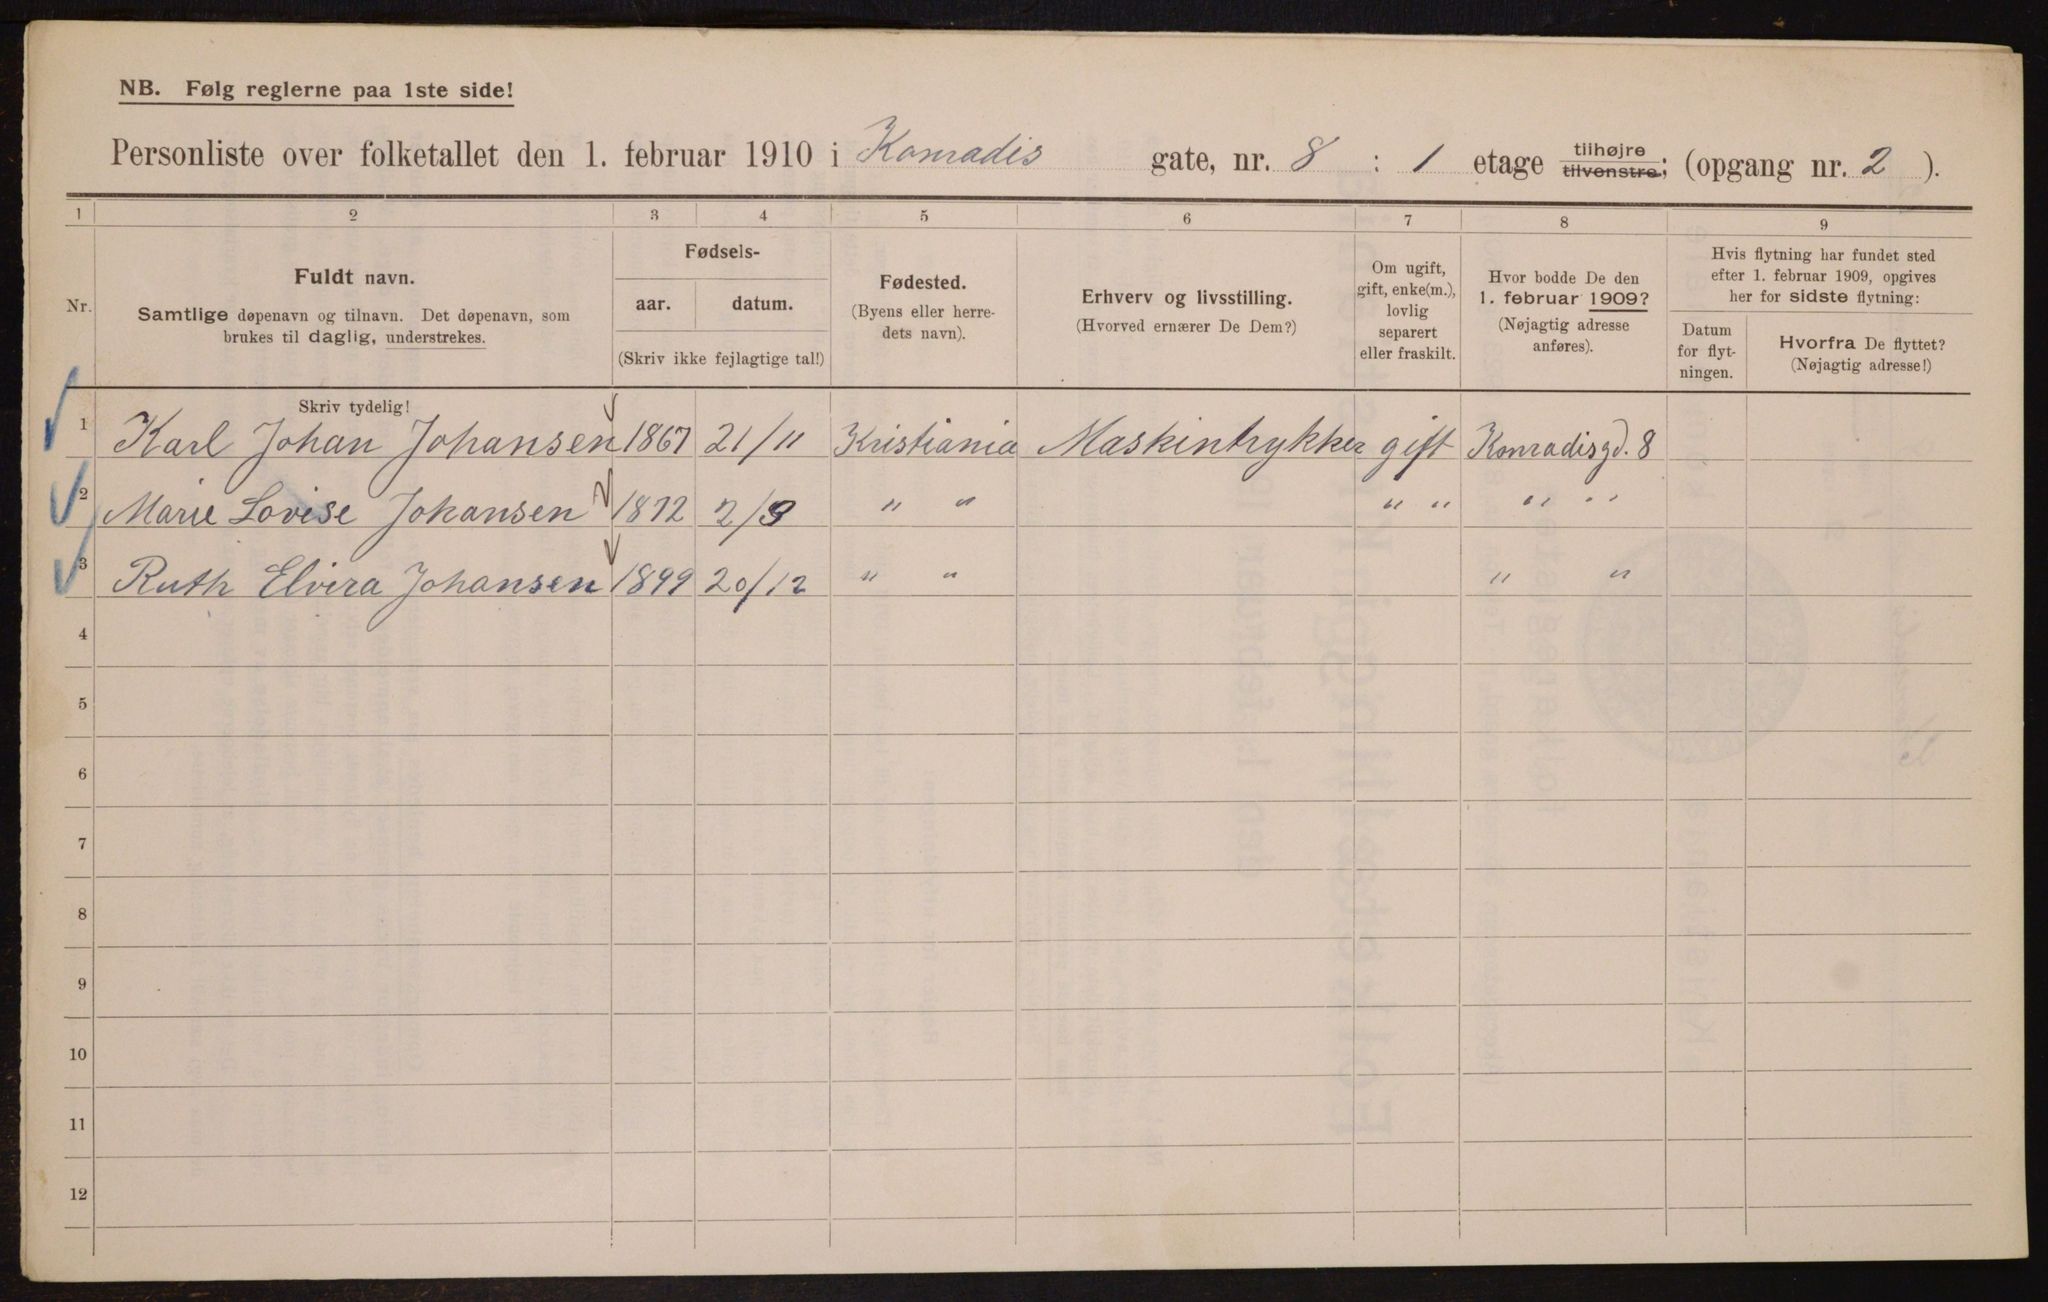 NB. Følg reglerne paa 1ste side!
Personliste over folketallet den 1. februar 1910 i Konradis gate, nr. 8 : 1 etage tilhøjre tilvenstre; (opgang nr. 2 ).
1 2 3 4 5 6 7 8 9
Nr.
Fuldt navn.
Samtlige døpenavn og tilnavn. Det døpenavn, som
brukes til daglig, understrekes.
Fødsels-
aar. datum.
(Skriv ikke fejlagtige tal!)
Fødested.
(Byens eller herre-
dets navn).
Erhverv og livsstilling.
(Hvorved ernærer De Dem?)
Om ugift,
gift, enke(m.),
lovlig
separert
eller fraskilt.
Hvor bodde De den
1. februar 1909?
(Nøjagtig adresse
anføres).
Hvis flytning har fundet sted
efter 1. februar 1909, opgives
her for sidste flytning:
Datum
for flyt-
ningen.
Hvorfra De flyttet?
(Nøjagtig adresse!)
Skriv tydelig!
1 Karl Johan Johansen 1867 21/11 Kristiania Maskintrykker gift Konradisgd. 8
2 Marie Lovise Johansen 1872 2/9 " " " " " "
3 Ruth Elvira Johansen 1899 20/12 " " " "
4
5
6
7
8
9
10
11
12